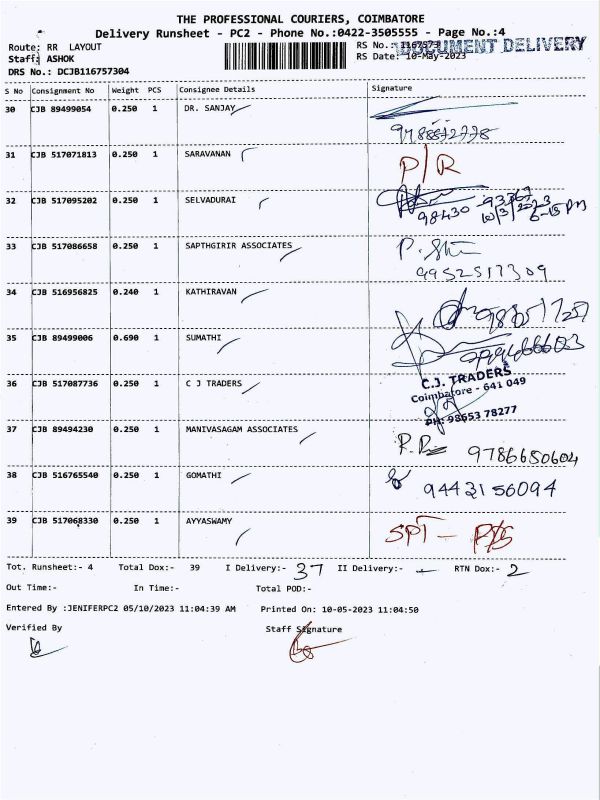 THE PROFESSIONAL COURIERS, COIMBATORE
Delivery Runsheet - PC2 - Phone No.:0422-3505555 - Page No.:4
Route: RR LAYOUT
RS No.: 1167573
DOCUMENT DELIVERY
Staff: ASHOK
RS Date: 10-May-2023
DRS No.: DCJB116757304
S No Consignment No Weight PCS Consignee Details Signature
30 CJB 89499054 0.250 1 DR. SANJAY
31 CJB 517071813 0.250 1 SARAVANAN P/R
32 CJB 517095202 0.250 1 SELVADURAI
98430
6-15 PM
33 CJB 517086658 0.250 1 SAPTHGIRIR ASSOCIATES
9952517309
34 CJB 516956825 0.240 1 KATHIRAVAN
35 CJB 89499006 0.690 1 SUMATHI
36 CJB 517087736 0.250 1 C J TRADERS
C.J. TRADERS
Coimbatore - 641 049
PH: 98653 78277
37 CJB 89494230 0.250 1 MANIVASAGAM ASSOCIATES
9786650604
38 CJB 516765540 0.250 1 GOMATHI 9443156094
39 CJB 517068330 0.250 1 AYYASWAMY SPT -
Tot. Runsheet:- 4 Total Dox:- 39 I Delivery:- 37 II Delivery:- - RTN Dox:- 2
Out Time:- In Time:- Total POD:-
Entered By :JENIFERPC2 05/10/2023 11:04:39 AM Printed On: 10-05-2023 11:04:50
Verified By Staff Signature